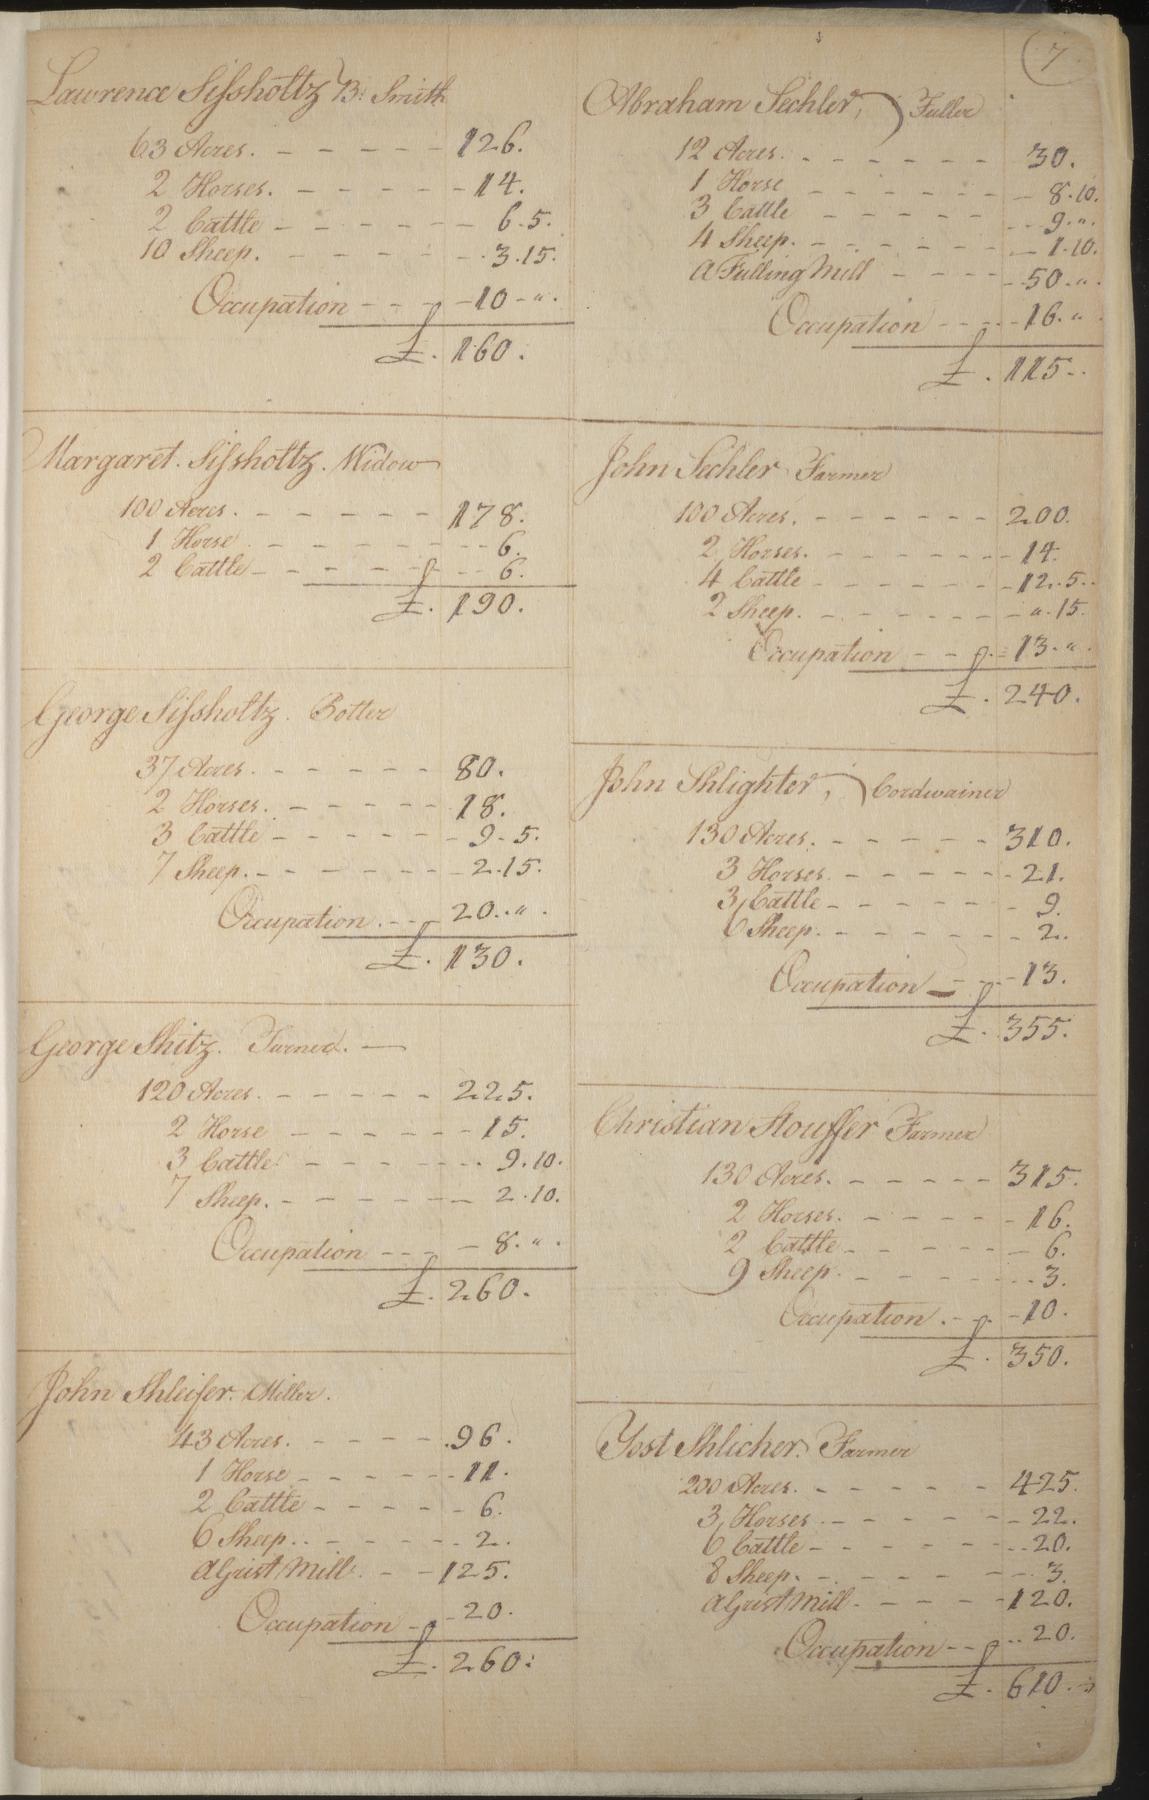 7
Lawrence Sissholtz B: Smith
63 Acres. - - - - - 126.
2 Horses. - - - - - 14.
2 Cattle - - - - - 6.5.
10 Sheep. - - - - - 3.15.
Occupation - - - 10 - " .
£. 160.
Margaret. Sissholtz. Widow
100 Acres. - - - - - 178.
1 Horse - - - - - 6.
2 Cattle - - - - - 6.
£. 190.
George Sissholtz. Potter
37 Acres. - - - - - 80.
2 Horses. - - - - - 18.
3 Cattle - - - - - 9-5.
7 Sheep. - - - - - 2.15.
Occupation. - - - 20. " .
£. 130.
George Shitz. Farmer. —
120 Acres. - - - - - 225.
2 Horse - - - - - 15.
3 Cattle - - - - - 9.10.
7 Sheep. - - - - - 2.10.
Occupation - - - 8. " .
£. 260.
John Shleifer. Miller.
43 Acres. - - - - - 96.
1 Horse - - - - - 11.
2 Cattle - - - - - 6.
6 Sheep. - - - - - 2.
A Grist Mill. - - 125.
Occupation - - 20.
£. 260.
Abraham Sechler, ) Fuller
12 Acres. - - - - - 30.
1 Horse - - - - - 8.10.
3 Cattle - - - - - 9. " .
4 Sheep. - - - - - 1.10.
A Fulling Mill - - - - 50. " .
Occupation - - - 16. " .
£. 115.
John Sechler Farmer
100 Acres. - - - - - 200.
2 Horses. - - - - - 14.
4 Cattle - - - - - 12.5.
2 Sheep. - - - - - " .15.
Occupation - - - 13. " .
£. 240.
John Shlighter, ) Cordwainer
130 Acres. - - - - - 310.
3 Horses. - - - - - 21.
3 Cattle - - - - - 9.
6 Sheep. - - - - - 2.
Occupation - - - 13.
£. 355.
Christian Stouffer Farmer
130 Acres. - - - - - 315.
2 Horses. - - - - - 16.
2 Cattle - - - - - 6.
9 Sheep. - - - - - 3.
Occupation. - - - 10.
£. 350.
Yost Shlicher. Farmer
200 Acres. - - - - - 425.
3 Horses - - - - - 22.
6 Cattle - - - - - 20.
8 Sheep. - - - - - 3.
A Grist Mill. - - - - 120.
Occupation - - - 20.
£. 610.